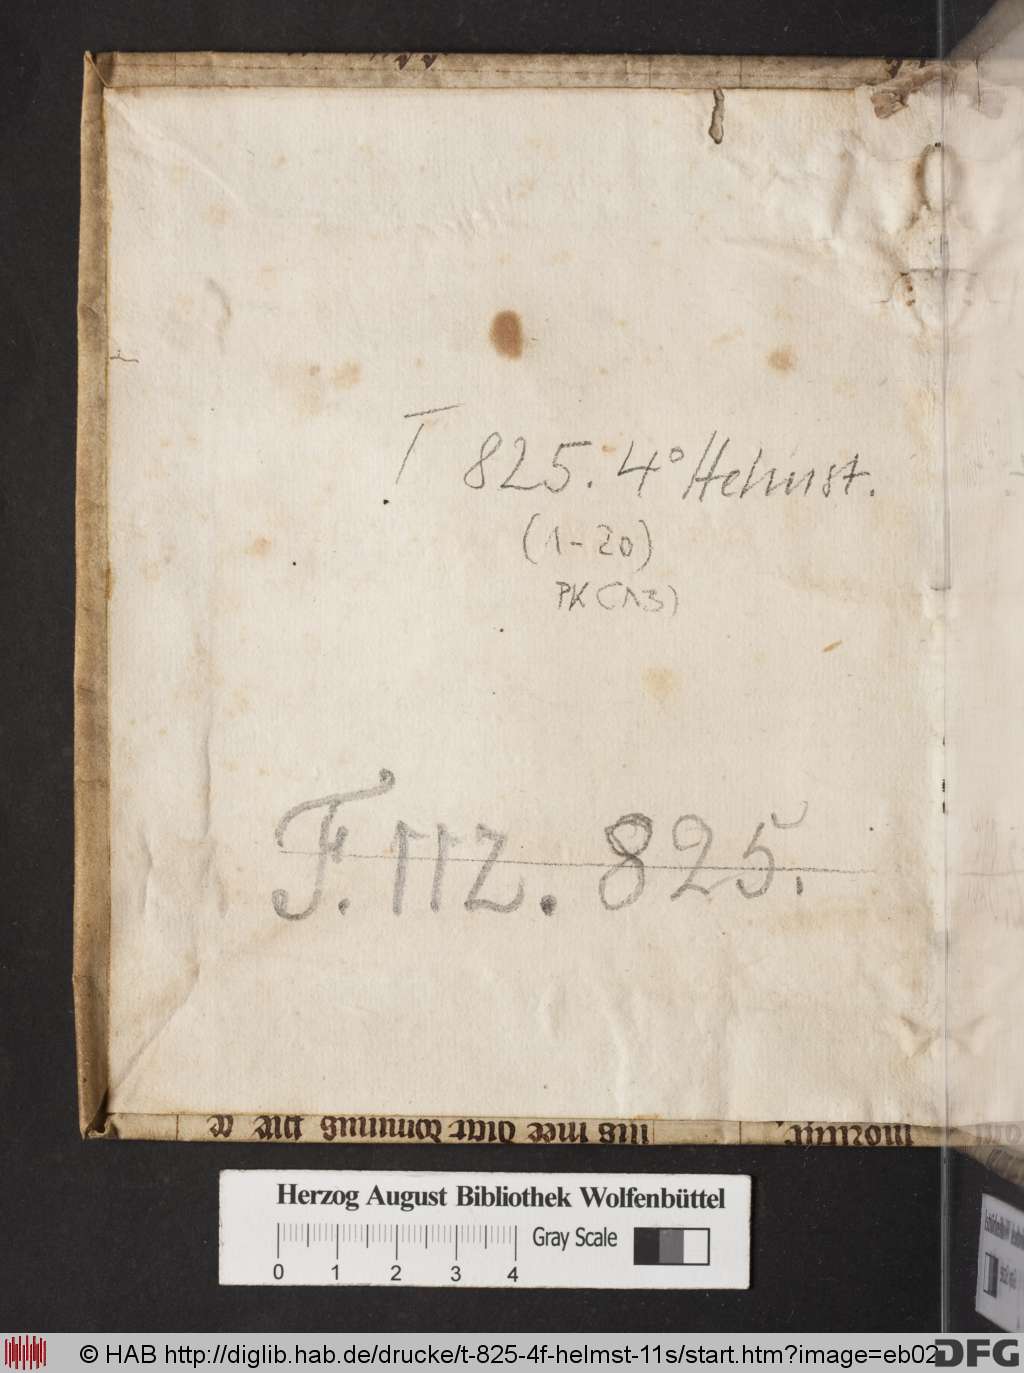 T 825. 4° Helmst.
(1-20)
PK (13)
F. 112. 825.
Herzog August Bibliothek Wolfenbüttel
Gray Scale
0 1 2 3 4
© HAB http://diglib.hab.de/drucke/t-825-4f-helmst-11s/start.htm?image=eb02
DFG